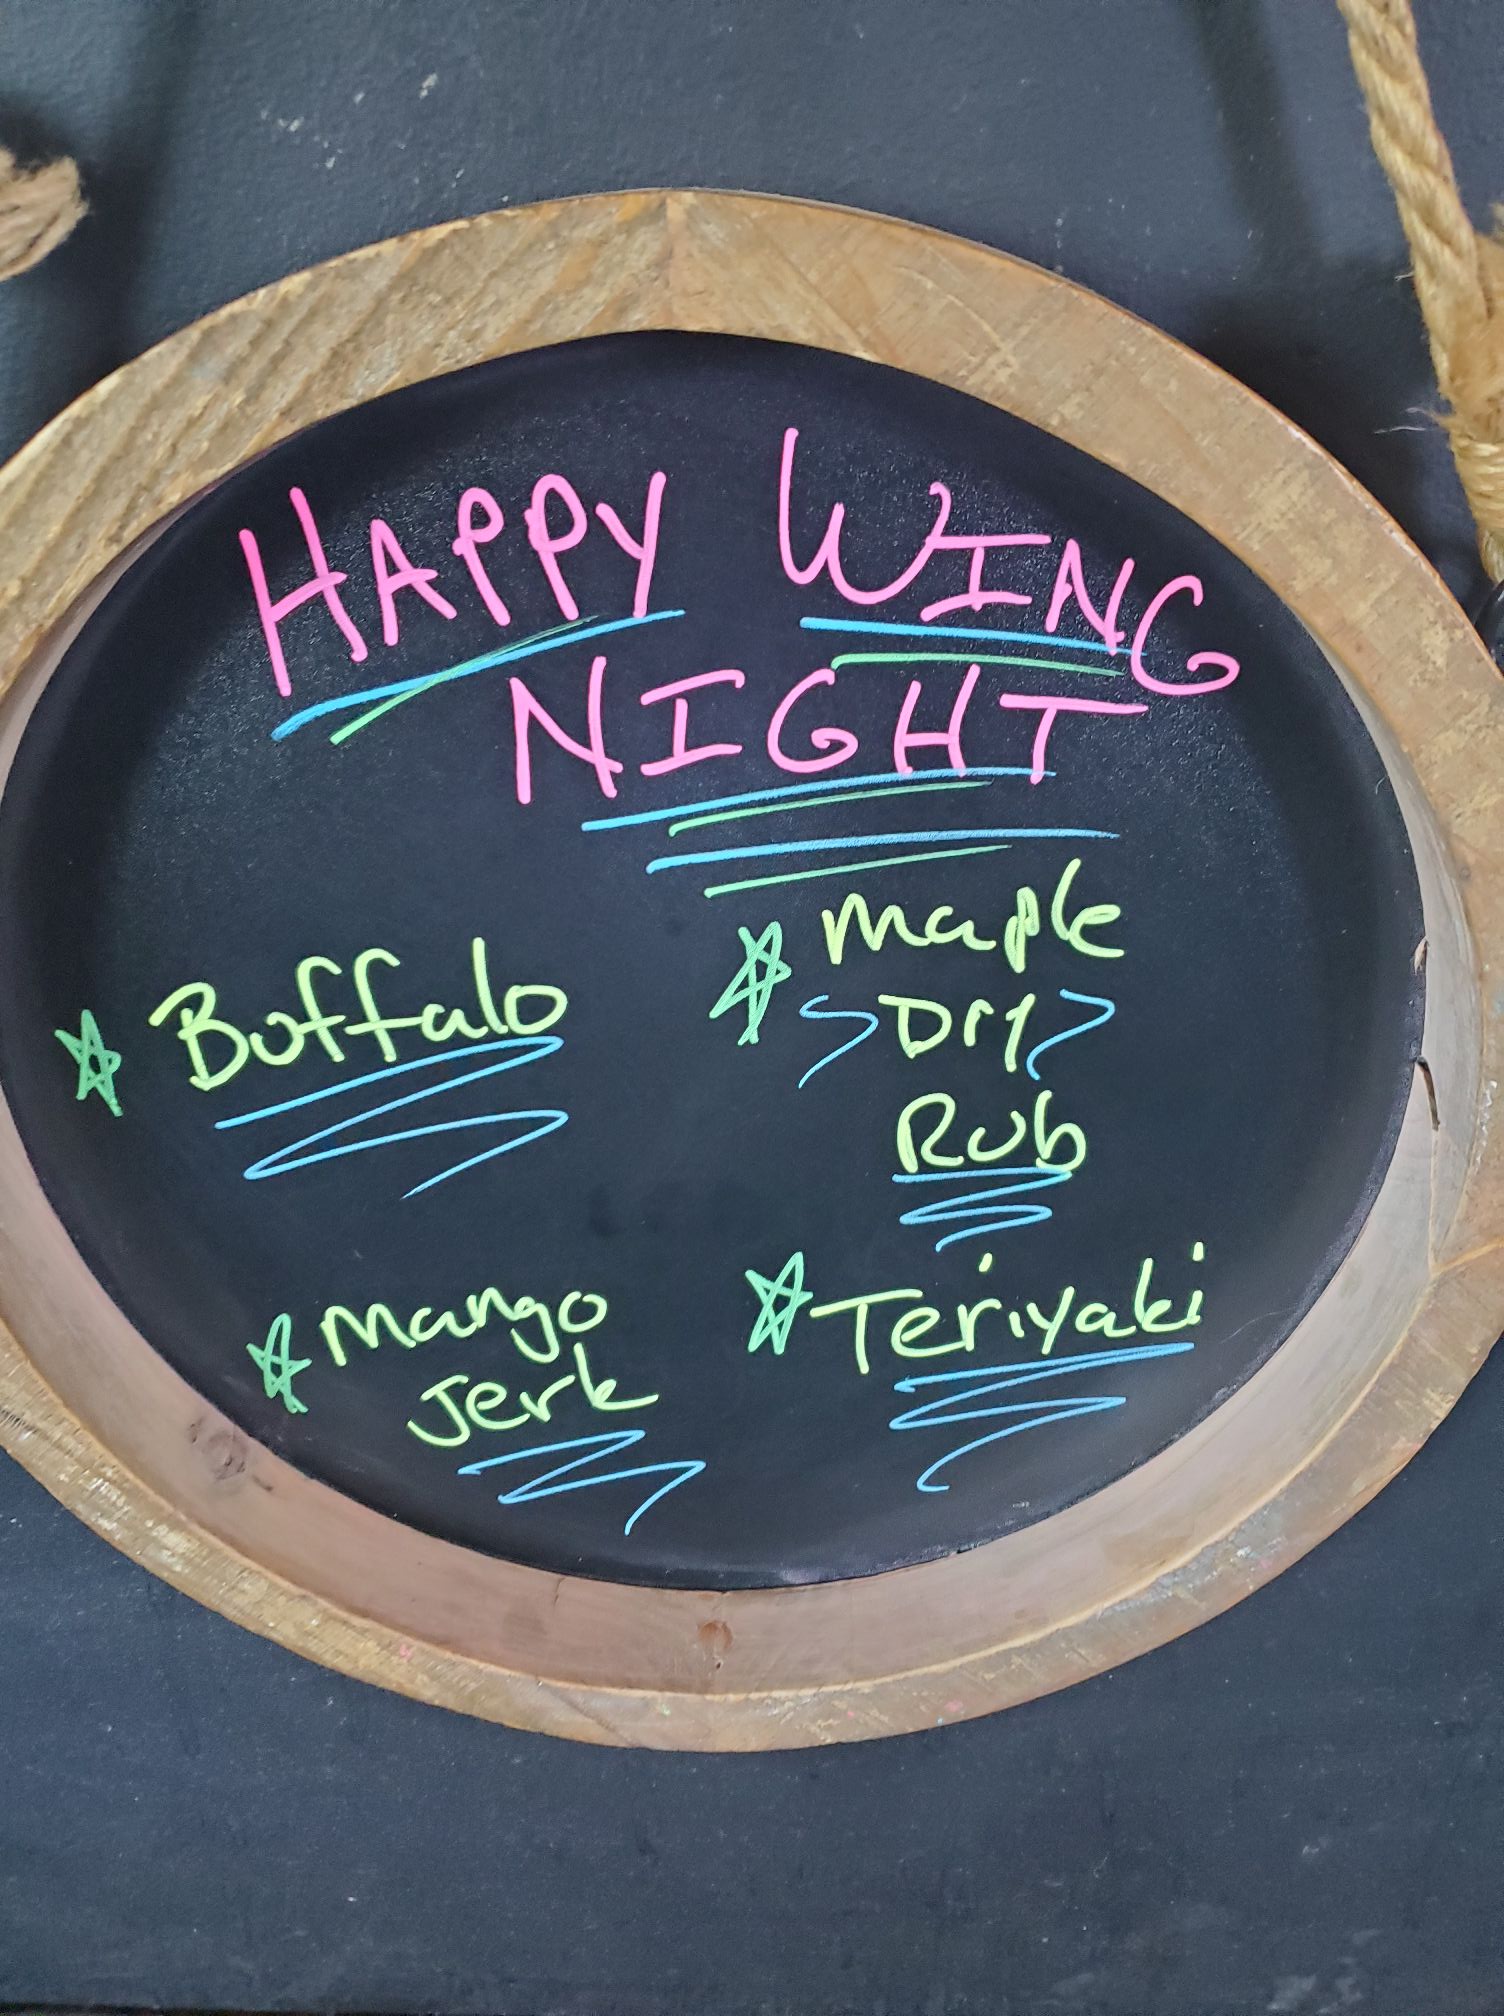 HAPPY WING
NIGHT
Buffalo
Maple
DRY
Rub
Mango
Jerk
Teriyaki